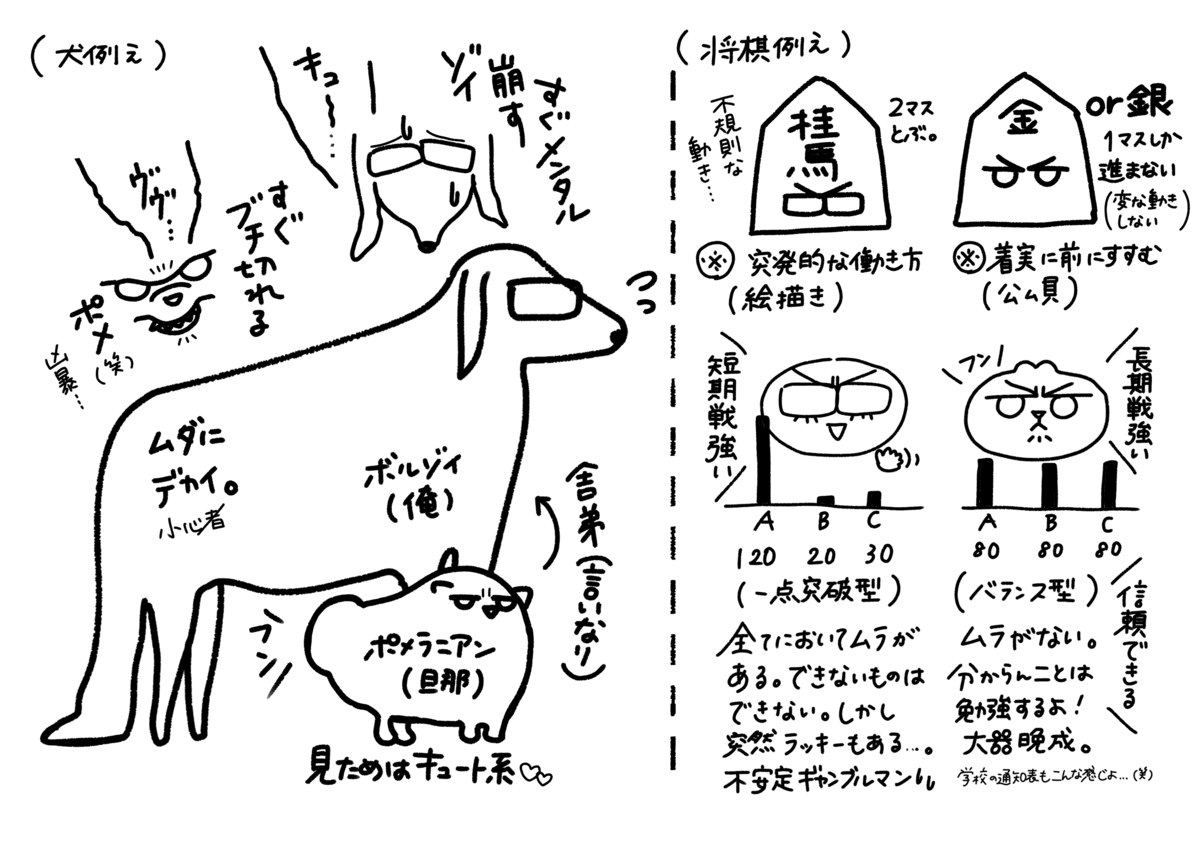 (犬例え)
キュ〜…
すぐメンタル
崩す
ゾイ
ヴヴ…
すぐ
ブチ切れる
ポメ
(笑)
凶暴…
ムダに
デカイ。
小心者
ボルゾイ
(俺)
舎弟(言いなり)
フン!
ポメラニアン
(旦那)
見ためはキュート系♡♡
(将棋例え)
不規則な
動き…
桂馬
2マス
とぶ。
※突発的な働き方
(絵描き)
金
or銀
1マスしか
進まない
(変な動き
しない)
※着実に前にすすむ
(公ム員)
短期戦強い
A B C
120 20 30
(一点突破型)
全てにおいてムラが
ある。できないものは
できない。しかし
突然ラッキーもある…。
不安定ギャンブルマン
フン!
長期戦強い
A B C
80 80 80
(バランス型)
信頼できる
ムラがない。
分からんことは
勉強するよ!
大器晩成。
学校の通知表もこんな感じよ…(笑)